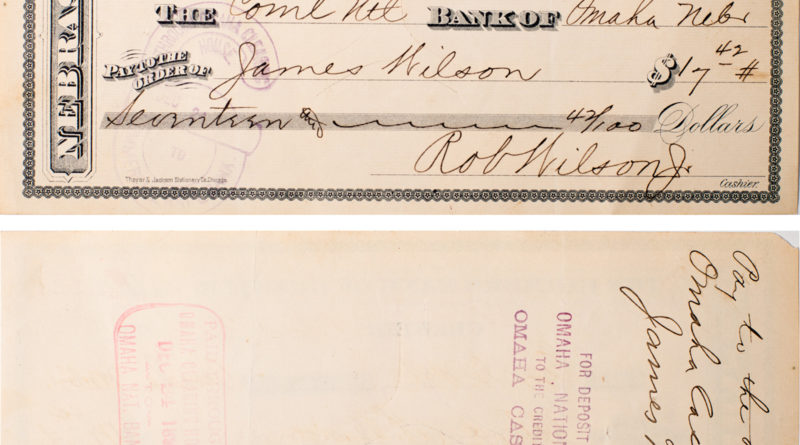 NEBRA
THE Coml Natl BANK OF Omaha Nebr
PAY TO THE
ORDER OF James Wilson $17 42 #
Seventeen and 42/100 Dollars
Rob Wilson Jr
Thayer & Jackson Stationery Co. Chicago
Cashier.
PAID THROUGH
OMAHA CLEARING
DEC 24
OMAHA NAT. BANK
FOR DEPOSIT
OMAHA NATION
TO THE CREDI
OMAHA CAS
Pay to the
Omaha Cas
James